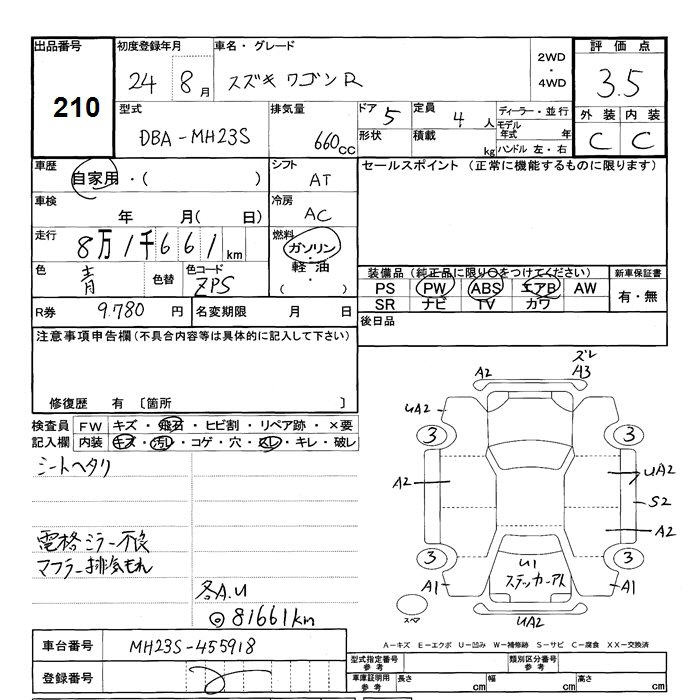 出品番号
210
初度登録年月
24 8月
車名・グレード
スズキ ワゴンR
2WD
・
4WD
評価点
3.5
型式
DBA-MH23S
排気量
660cc
ドア 5
形状
定員 4人
積載 kg
ディーラー・並行
モデル年式 年
ハンドル 左・右
外装 内装
C C
車歴
自家用・( )
シフト
AT
セールスポイント (正常に機能するものに限ります)
車検
年 月( 日)
冷房
AC
走行
8万1千661km
燃料
ガソリン
・
軽油
( )
色
青
色替
色コード
ZPS
装備品(純正品に限り〇をつけてください)
新車保証書
PS PW ABS エアB AW
SR ナビ TV カワ
有・無
R券 9.780円
名変期限 月 日
後日品
注意事項申告欄(不具合内容等は具体的に記入して下さい)
修復歴 有 〔箇所 〕
検査員記入欄
FW キズ・飛石・ヒビ割・リペア跡・×要
内装 キズ・汚レ・コゲ・穴・スレ・キレ・破レ
シートヘタリ
電格ミラー不良
マフラー排気もれ
各A.U
◎81661km
A2
ズレ
A3
UA2
3
3
A2
UA2
S2
A2
3
3
U1
ステッカーアト
A1
A1
スペア
UA2
A-キズ E-エクボ U-凹み W-補修跡 S-サビ C-腐食 XX-交換済
車台番号
MH23S-455918
登録番号
型式指定番号
参考
類別区分番号
参考
車庫証明用
参考
長さ cm
幅 cm
高さ cm